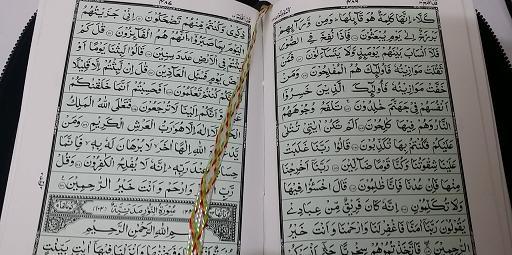 كَلَّا ؕ اِنَّهَا كَلِمَةٌ هُوَ قَآئِلُهَا ؕ وَمِنْ وَّرَآئِهِمْ
بَرْزَخٌ اِلٰى يَوْمِ يُبْعَثُوْنَ ۝ فَاِذَا نُفِخَ فِى الصُّوْرِ
فَلَآ اَنْسَابَ بَيْنَهُمْ يَوْمَئِذٍ وَّلَا يَتَسَآءَلُوْنَ ۝ فَمَنْ
ثَقُلَتْ مَوَازِيْنُهٗ فَاُولٰٓئِكَ هُمُ الْمُفْلِحُوْنَ ۝ وَمَنْ
خَفَّتْ مَوَازِيْنُهٗ فَاُولٰٓئِكَ الَّذِيْنَ خَسِرُوْٓا
اَنْفُسَهُمْ فِيْ جَهَنَّمَ خٰلِدُوْنَ ۝ تَلْفَحُ وُجُوْهَهُمُ
النَّارُ وَهُمْ فِيْهَا كٰلِحُوْنَ ۝ اَلَمْ تَكُنْ اٰيٰتِيْ تُتْلٰى
عَلَيْكُمْ فَكُنْتُمْ بِهَا تُكَذِّبُوْنَ ۝ قَالُوْا رَبَّنَا غَلَبَتْ
عَلَيْنَا شِقْوَتُنَا وَكُنَّا قَوْمًا ضَآلِّيْنَ ۝ رَبَّنَآ اَخْرِجْنَا
مِنْهَا فَاِنْ عُدْنَا فَاِنَّا ظٰلِمُوْنَ ۝ قَالَ اخْسَئُوْا فِيْهَا
وَلَا تُكَلِّمُوْنِ ۝ اِنَّهٗ كَانَ فَرِيْقٌ مِّنْ عِبَادِيْ
يَقُوْلُوْنَ رَبَّنَآ اٰمَنَّا فَاغْفِرْ لَنَا وَارْحَمْنَا وَاَنْتَ خَيْرُ
الرّٰحِمِيْنَ ۝ فَاتَّخَذْتُمُوْهُمْ سِخْرِيًّا حَتّٰٓى اَنْسَوْكُمْ
ذِكْرِيْ وَكُنْتُمْ مِّنْهُمْ تَضْحَكُوْنَ ۝ اِنِّيْ جَزَيْتُهُمُ
الْيَوْمَ بِمَا صَبَرُوْٓا اَنَّهُمْ هُمُ الْفَآئِزُوْنَ ۝ قٰلَ كَمْ
لَبِثْتُمْ فِى الْاَرْضِ عَدَدَ سِنِيْنَ ۝ قَالُوْا لَبِثْنَا يَوْمًا اَوْ
بَعْضَ يَوْمٍ فَسْئَلِ الْعَآدِّيْنَ ۝ قٰلَ اِنْ لَّبِثْتُمْ اِلَّا قَلِيْلًا
كُنْتُمْ تَعْلَمُوْنَ ۝ اَفَحَسِبْتُمْ اَنَّمَا خَلَقْنٰكُمْ
وَّاَنَّكُمْ اِلَيْنَا لَا تُرْجَعُوْنَ ۝ فَتَعٰلَى اللّٰهُ الْمَلِكُ
الْحَقُّ لَآ اِلٰهَ اِلَّا هُوَ رَبُّ الْعَرْشِ الْكَرِيْمِ ۝ وَمَنْ
يَّدْعُ اللّٰهِ اِلٰهًا اٰخَرَ لَا بُرْهَانَ لَهٗ بِهٖ فَاِنَّمَا
حِسَابُهٗ عِنْدَ رَبِّهٖ ؕ اِنَّهٗ لَا يُفْلِحُ الْكٰفِرُوْنَ ۝ وَقُلْ
رَّبِّ وَارْحَمْ وَاَنْتَ خَيْرُ الرّٰحِمِيْنَ ۝
سُوْرَةُ النُّوْرِ مَدَنِيَّةٌ
بِسْمِ اللّٰهِ الرَّحْمٰنِ الرَّحِيْمِ
وَاَنْزَلْنَا فِيْهَآ اٰيٰتٍۭ بَيِّنٰتٍ